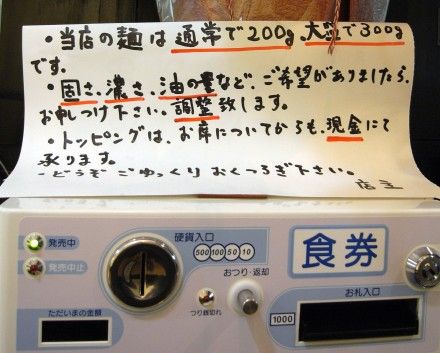 ・当店の麺は通常で200g、大盛で300g
です。
・固さ、濃さ、油の量など、ご希望がありましたら、
お申しつけ下さい。調整致します。
・トッピングは、お席についてからも、現金にて
承ります。
・どうぞごゆっくりおくつろぎ下さい。
店主
発売中
発売中止
硬貨入口
500 100 50 10
食券
おつり・返却
つり銭切れ
ただいまの金額
お札入口
1000